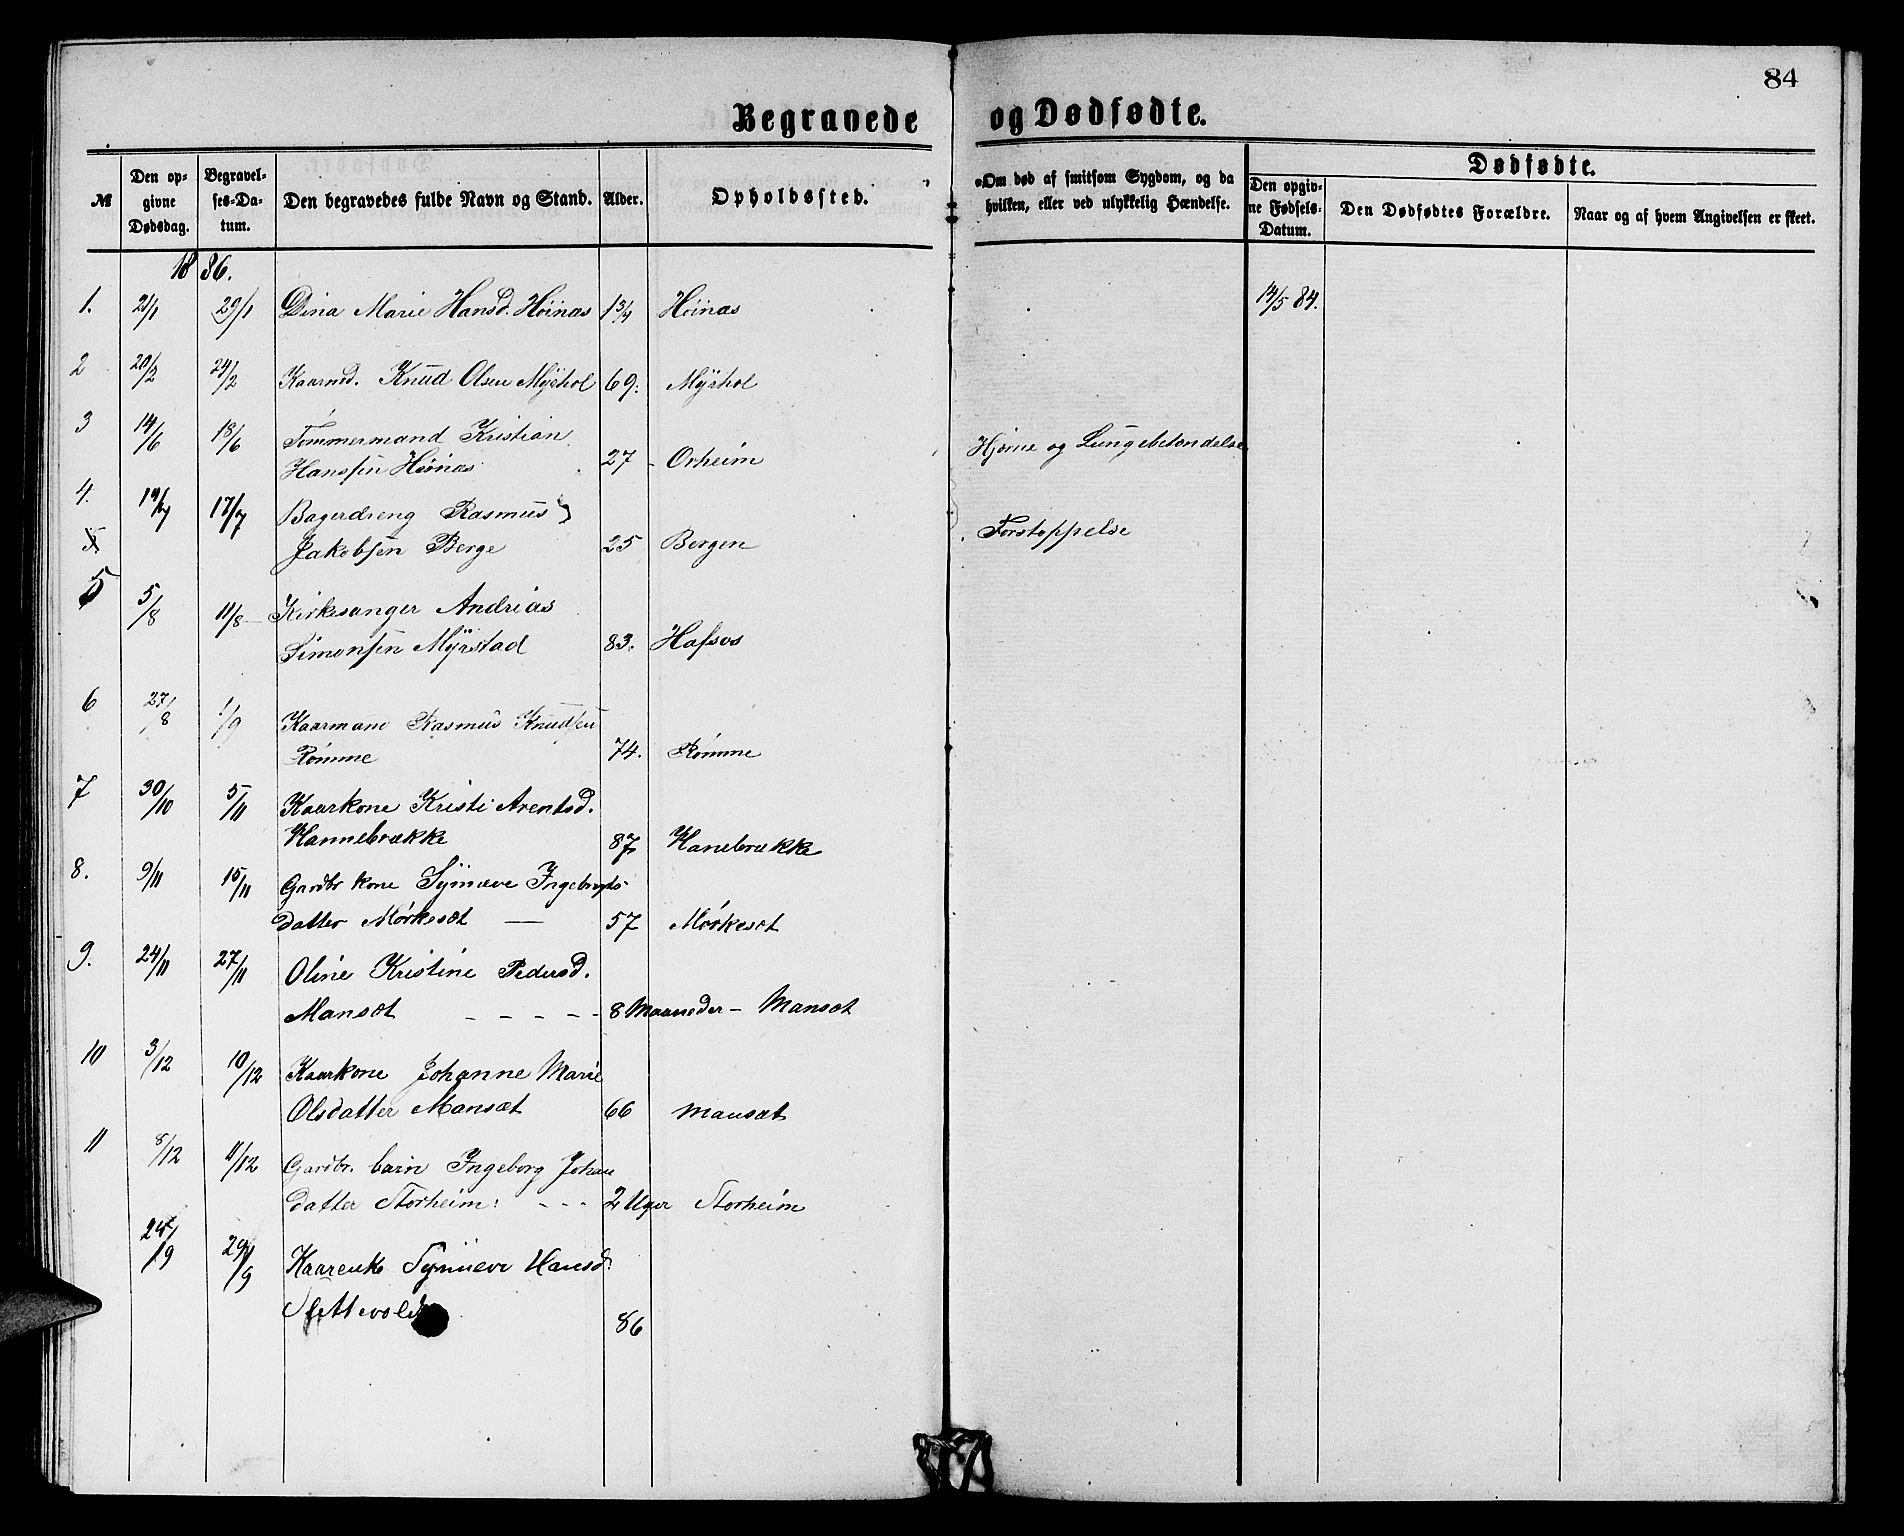 84
Begravede og Dødfødte.
№ Den opgivne Dødsdag. Begravelses-Datum. Den begravedes fulde Navn og Stand. Alder. Opholdssted. Om død af smitsom Sygdom, og da hvilken, eller ved ulykkelig Hændelse. Dødfødte. Den opgivne Fødsels-Datum. Den Dødfødtes Forældre. Naar og af hvem Angivelsen er skeet.
1886.
1. 21/1 29/1 Dina Marie Hansd. Höinæs 1 3/4 Höinæs 14/5 84.
2 20/2 24/2 Kaarmd. Knud Olsen Myrhol 69. Myrhol
3 14/6 18/6 Tömmermand Kristian
Hanssen Höinæs 27 - Orheim Hjerne og Lungebetendelse
4. 14/7 17/7 Bagerdreng Rasmus
5 Jakobsen Berge 25 Bergen Forstoppelse
5 5/8 11/8 Kirkesanger Andreas
Simonsen Myrstad 83. Hafsos
6 27/8 1/9 Kaarmann Rasmus Knudsen
Rømme 74. Rømme
7 30/10 5/11 Kaarkone Kristi Arentsd.
Hannebrække 87 Hanebrække
8. 9/11 15/11 Gardbr kone Synneve Ingebregts-
datter Mørkesæt — 57 Mørkesæt
9. 24/11 27/11 Oline Kristine Pedersd.
Mansæt - - - - - 8 Maaneder - Mansæt
10 3/12 10/12 Kaarkone Johanne Marie
Olsdatter Mansæt 66 Mansæt
11 8/12 11/12 Gardbr. barn Ingeborg Johan
datter Storheim: - - - 2 Uger Storheim
24/9 29/9 Kaarenke Synneve Hansd.
Slettevold 86